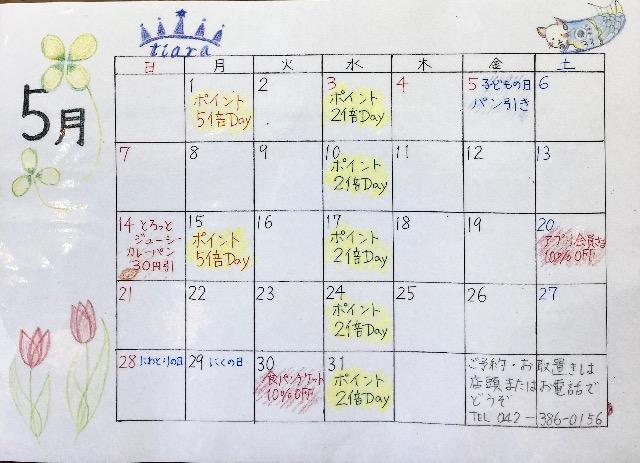 tiara
5月
日 月 火 水 木 金 土
1 2 3 4 5 子どもの日 6
ポイント
5倍Day
ポイント
2倍Day
パン引き
7 8 9 10 11 12 13
ポイント
2倍Day
14 とろっと
ジューシー
カレーパン
30円引
15 16 17 18 19 20
ポイント
5倍Day
ポイント
2倍Day
アプリ会員さま
10%OFF
21 22 23 24 25 26 27
ポイント
2倍Day
28 にわとりの日 29 にくの日 30 31
食パンチケット
10%OFF
ポイント
2倍Day
ご予約・お取置きは
店頭またはお電話で
どうぞ
TEL 042-386-0156